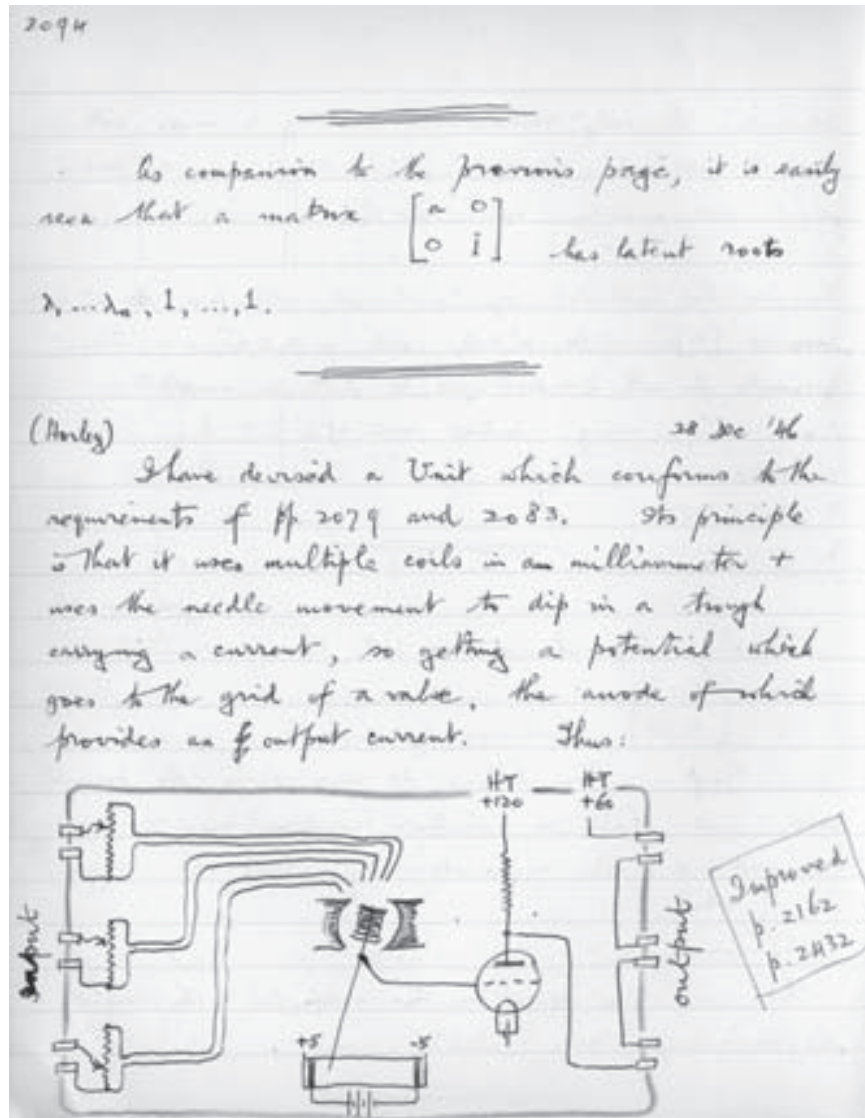 2094
As companion to the previous page, it is easily
seen that a matrix [a 0
0 I] has latent roots
λ, ... λₙ, 1, ..., 1.
28 Dec '46
I have devised a Unit which conforms to the
requirements of pp 2079 and 2083. Its principle
is that it uses multiple coils in a milliammeter +
uses the needle movement to dip in a trough
carrying a current, so getting a potential which
goes to the grid of a valve, the anode of which
provides an output current. Thus:
HT HT
+120 +60
Improved
p.2162
p.2432
input
output
+5 -5